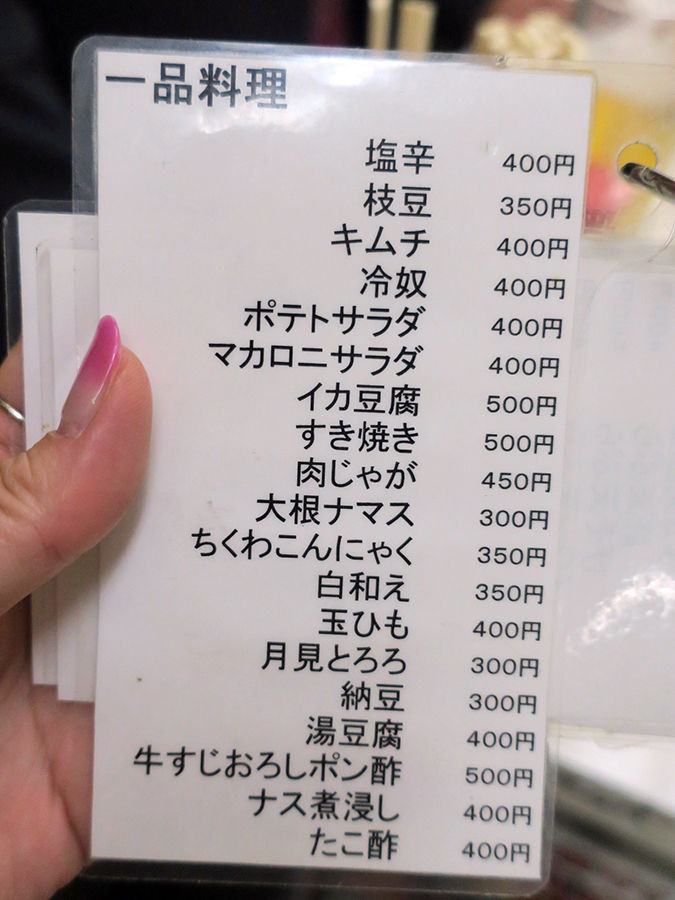 一品料理
塩辛 400円
枝豆 350円
キムチ 400円
冷奴 400円
ポテトサラダ 400円
マカロニサラダ 400円
イカ豆腐 500円
すき焼き 500円
肉じゃが 450円
大根ナマス 300円
ちくわこんにゃく 350円
白和え 350円
玉ひも 400円
月見とろろ 300円
納豆 300円
湯豆腐 400円
牛すじおろしポン酢 500円
ナス煮浸し 400円
たこ酢 400円